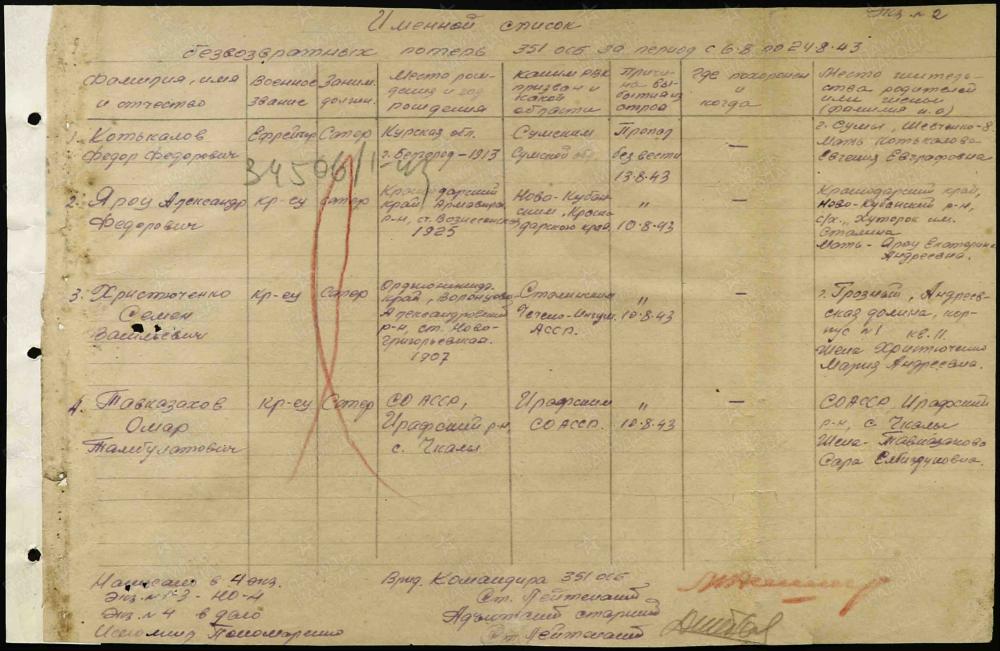 Экз. №2
Именной список
безвозвратных потерь 351 осб за период с 6.8 по 24.8.43
Фамилия, имя и отчество
Военное звание
Заним. должн.
Место рождения и год рождения
Каким РВК призван и какой области
Причина выбытия из строя
Где похоронен и когда
Место жительства родителей или жены (фамилия и.о)
1. Котькалов Сапер Курская обл. Сумским Пропал г. Сумы,
Федор Федорович г. Белгород - 1913 Сумской обл. без вести — Мать Котькалова
13.8.43 Евгения Евграфовна
34506
2. Яроц Александр Кр-ец Сапер Краснодарский Ново-Кубан- " — Краснодарский край,
Федорович край, Армавирск. ским, Красно- 10.8.43 Ново-Кубанский р-н,
р-н, ст. Вознесенская дарского края с/х., Хуторок им.
1925 Сталина
Мать - Яроц Екатерина
Андреевна.
3. Христюченко Кр-ец Сапер Орджоникидз. Сталинским " — г. Грозный, Андреев-
Семен край, Воронцово- Чечено-Ингуш. 10.8.43 ская долина, кор-
Васильевич Александровский АССР. пус №1 кв. 11.
р-н, ст. Ново- Жена Христюченко
григорьевская. Мария Андреевна.
1907
4. Тавказахов Кр-ец Сапер СО АССР, Ирафским " — СОАССР, Ирафский
Омар Ирафский р-н, СОАССР. 10.8.43 р-н, с. Чкалы
Тамбулатович с. Чкалы Жена - Тавказахова
Сара
Написано в 4 экз.
Экз. №4 в дело
Пономаренко
Врид. Командира 351 осб
Ст. Лейтенант
Адъютант старший
Ст. Лейтенант